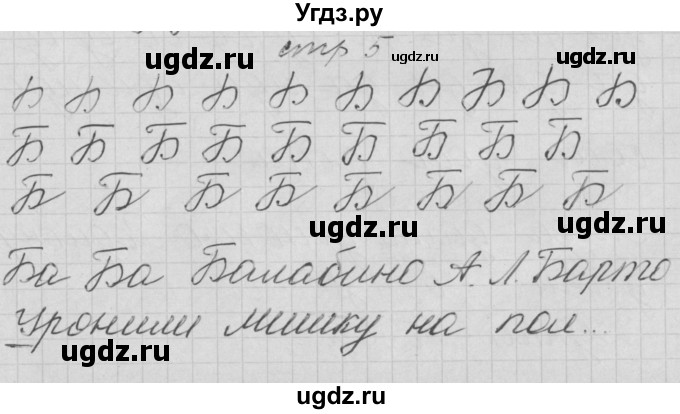 Угдз.ру
стр 5
ugdz.ru ugdz.ru ugdz.ru
Б Б Б Б Б Б Б Б Б Б
ugdz.ru ugdz.ru
Б Б Б Б Б Б Б Б Б
Б Б Б Б Б Б Б Б Б
ugdz.ru ugdz.ru
Ба Ба Балабино А. Л. Барто
Уронили мишку на пол...
ugdz.ru ugdz.ru
ugdz.ru